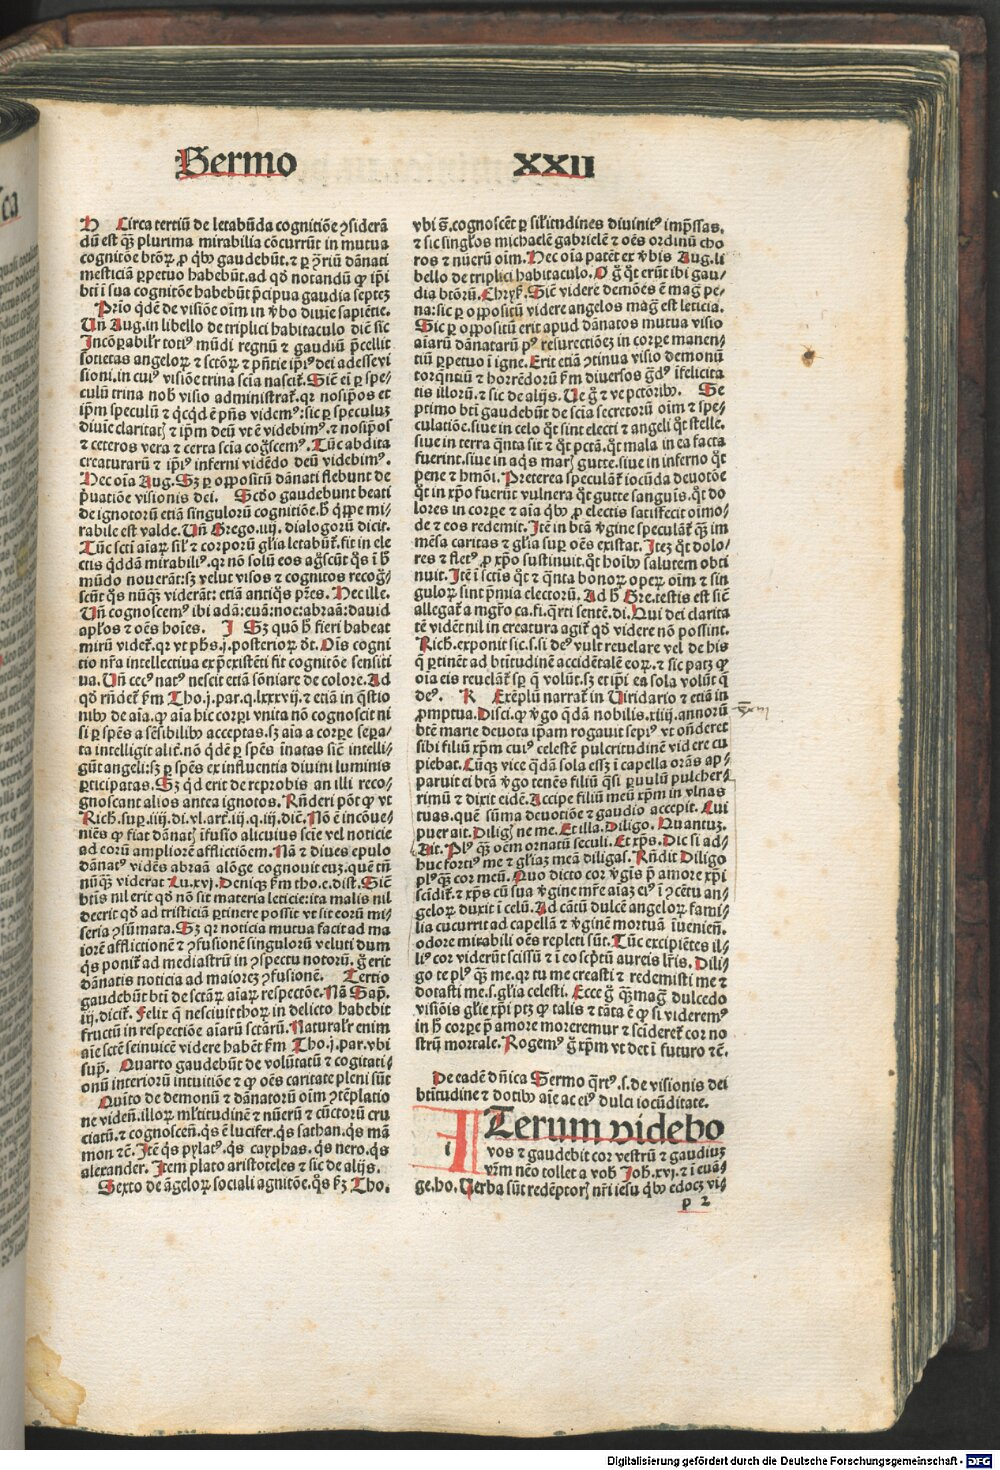 Sermo XXII
H Circa tertiū de letabūda cognitiōe ꝯsiderā
dū est qꝫ plurima mirabilia cōcurrūt in mutua
cognitōe btōꝝ ꝓ qbꝰ gaudebūt. ⁊ ꝑ ꝯriū dānati
mesticiā ꝑpetuo habebūt. ad qḋ notandū ꝙ ip̄i
bti ī sua cognitōe habebūt p̄cipua gaudia septeꝫ
Prīo qdē de visiōe oīm in v̄bo diuīe sapiētie.
Uñ Aug. in libello de triplici habitaculo diē sic
Incōꝑabilr̄ totiꝰ mūdi regnū ⁊ gaudiū p̄cellit
societas angeloꝝ ⁊ sctōꝝ ⁊ pn̄tie ip̄iꝰ dei adesse vi
sioni. in cuiꝰ visiōe trina scīa nascit̄. Siē ei ꝑ spe/
culū trina nob̄ visio administrat̄. qr nosip̄os et
ip̄m speculū ⁊ qcqd ē pn̄s videmꝰ: sic ꝑ speculuꝫ
diuīe claritatꝭ ⁊ ip̄m deū vt ē videbimꝰ. ⁊ nosip̄os
⁊ ceteros vera ⁊ certa scīa coḡscemꝰ. Tūc abdita
creaturarū ⁊ ip̄iꝰ inferni vidēdo deū videbimꝰ.
Hec oīa Aug. Sꝫ ꝑ oppositū dānati flebunt de
p̄uatiōe visionis dei. Scḋo gaudebunt beati
de ignotorū etiā singulorū cognitiōe. h̄ qppe mi/
rabile est valde. Uñ Grego. iiij. dialogorū dicit.
Tūc scti aīaꝝ sil̄ ⁊ corporū glīa letabūt̄. fit in ele
ctis qddā mirabiliꝰ. qr nō solū eos aḡscūt qs ī h̄
mūdo nouerāt: sꝫ velut visos ⁊ cognitos recoḡ/
scūt qs nūqꝫ viderāt: etiā antiqs pr̄es. Hec ille.
Uñ cognoscemꝰ ibi adā: euā: noe: abraā: dauid
apl̄os ⁊ oēs hoīes. I Sꝫ quō h̄ fieri habeat
mirū videt̄. qr vt pħs. j. posterioꝝ ḋt. Oīs cogni
tio nr̄a intellectiua exp̄existēti fit cognitōe sensiti
ua. Uñ cecꝰ natꝰ nescit etiā sōniare de colore. Ad
qḋ rn̄det̄ f̄m Tho. j. par. q. lxxxvij. ⁊ etiā in q̄stio
nibꝰ de aīa. ꝙ aīa hic corpri vnita nō cognoscit ni
si ꝑ spēs a sēsibilibꝰ acceptas. sꝫ aīa a corpe sepa/
ta intelligit alit̄. nō qdē ꝑ spēs īnatas siē intelli/
gūt angeli: sꝫ ꝑ spēs ex influentia diuini luminis
ꝑticipatas. Sꝫ qd erit de reprobis an illi reco/
gnoscant alios antea ignotos. Rn̄deri pōt ꝙ vt
Rich. sup. iiij. di. vl. art. iij. q. iij. diē. Nō ē incōue/
niēs ꝙ fiat dānatꝭ īfusio alicuius scīe vel noticie
ad eorū ampliorē afflictiōem. Nā ⁊ diues epulo
dānatꝰ vidēs abraā alōge cognouit euꝫ. quē tn̄
nūqꝫ viderat Lu. xvj. Deniqꝫ f̄m tho. e. dist. Siē
btīs nil erit qḋ nō sit materia leticie: ita malis nil
deerit qḋ ad tristiciā ꝑtinere possit vt sit eorū mi/
seria ꝯsūmata. Sꝫ qr noticia mutua facit ad ma
iorē afflictionē ⁊ ꝯfusionē singulorū veluti dum
qs ponit̄ ad mediastrū in ꝯspectu notorū. ḡ erit
dānatis noticia ad maioreꝫ ꝯfusionē. Tertio
gaudebūt bti de sctāꝝ aīaꝝ respectōe. Nā Sap.
iij. dicit̄. Felix q nesciuit thoꝝ in delicto habebit
fructū in respectiōe aīarū sctārū. Naturalr̄ enim
aīe sctē seinuicē videre habēt f̄m Tho. j. par. vbi
sup̄. Quarto gaudebūt de volūtatū ⁊ cogitati/
onū interiorū intuitiōe ⁊ ꝙ oēs caritate pleni sūt
Quīto de demonū ⁊ dānatorū oīm ꝯtēplatio
ne viden̄. illoꝝ ml̄titudinē ⁊ nūerū ⁊ cūctorū cru
ciatū. ⁊ cognoscen̄. qs ē lucifer. qs sathan. qs mā
mon ⁊c̄. Itē qs pylatꝰ. qs cayphas. qs nero. qs
alexander. Item plato aristoteles ⁊ sic de alijs.
Sexto de āgeloꝝ sociali agnitōe. qs f̄ꝫ Tho.
vbi s̄. cognoscēt ꝑ sil̄itudines diuinitꝰ imp̄ssas.
⁊ sic singl̄os michaelē gabrielē ⁊ oēs ordinū cho
ros ⁊ nūerū oīm. Hec oīa patēt ex v̄bis Aug. li
bello de triplici habitaculo. O ḡ qt erūt ibi gau/
dia btōrū. Chryꝭ. Siē videre demōes ē maḡ pe/
na: sic ꝑ oppositū videre angelos maḡ est leticia.
Sic ꝑ oppositū erit apud dānatos mutua visio
aīarū dānatarū pꝰ resurectiōeꝫ in corpe manen/
tiū ꝑpetuo ī igne. Erit etiā ꝯtinua visio demonū
torqntiū ⁊ horrēdorū f̄m diuersos ḡdꝰ īfelicita
tis illorū. ⁊ sic de alijs. Ue ḡ ⁊ ve pctōribꝰ. Se
ptimo bti gaudebūt de scīa secretorū oīm ⁊ spe/
culatiōe. siue in celo qt sint electi ⁊ angeli qt stelle.
siue in terra qnta sit ⁊ qt pctā. qt mala in ea facta
fuerint. siue in aqs marꝭ gutte. siue in inferno qt
pene ⁊ hmōi. Preterea speculat̄ iocūda deuotōe
qt in xp̄o fuerūt vulnera qt gutte sanguis. qt do
lores in corpe ⁊ aīa qbꝰ ꝓ electis satisfecit oīmo/
de ⁊ eos redemit. Itē in btā v̄gine speculat̄ qꝫ im
mēsa caritas ⁊ glīa sup oēs existat. Iteꝫ qt dolo/
res ⁊ fletꝰ ꝓ xp̄o sustinuit. qt hoībꝰ salutem obti
nuit. Itē ī sctīs qt ⁊ qnta bonoꝝ opeꝝ oīm ⁊ sin
guloꝝ sint p̄mia electorū. Ad h̄ Gre. testis est siē
allegat̄ a mgr̄o ca. fi. qrti sentē. di. Qui dei clarita
tē vidēt nil in creatura agit̄ qḋ videre nō possint.
Rich. exponit sic. s. si deꝰ vult reuelare vel de his
q ꝑtinēt ad btitudinē accidētalē eoꝝ. ⁊ sic patꝫ ꝙ
oīa eis reuelat̄ sꝑ q volūt. sꝫ et ip̄i ea sola volūt q
deꝰ. K Exēplū narrat̄ in Uiridario ⁊ etiā in
ꝓmptua. Disci. ꝙ v̄go qdā nobilis. xiiij. annorū
btēm marie deuota ip̄am rogauit sepiꝰ vt on̄deret
sibi filiū xp̄m cuiꝰ celestē pulcritudinē videre cu
piebat. Cūqꝫ vice qdā sola essꝫ ī capella orās ap/
paruit ei btā v̄go tenēs filiū qsi ꝑuulū pulcher/
rimū ⁊ dixit eidē. Accipe filiū meū xp̄m in vlnas
tuas. quē sūma deuotiōe ⁊ gaudio accepit. Cui
puer ait. Diligꝭ ne me. Et illa. Diligo. Quantuꝫ.
Ait. Plꝰ qꝫ oēm ornatū seculi. Et xp̄s. Dic si ad/
huc fortiꝰ me ⁊ glīaꝫ meā diligas. Rn̄dit Diligo
plꝰqꝫ cor meū. Quo dicto cor v̄gīs p̄ amore xp̄i
scīdit̄. ⁊ xp̄s cū sua v̄gine mr̄e aīaꝫ eiꝰ ī ꝯcētu an/
geloꝝ duxit ī celū. Ad cātū dulcē angeloꝝ fami/
lia cucurrit ad capellā ⁊ v̄ginē mortuā īuenien̄.
odore mirabili oēs repleti sūt. Tūc excipiētes il/
liꝰ cor viderūt scissū ⁊ ī eo scp̄tū aureis lr̄is. Dili/
go te plꝰ qꝫ me. qr tu me creasti ⁊ redemisti me ⁊
dotasti me. s. glīa celesti. Ecce ḡ qꝫ maḡ dulcedo
visiōis glīe xp̄i ptꝫ ꝙ talis ⁊ tāta ē ꝙ si viderem̄
in h̄ corpe p̄ amore moreremur ⁊ scīderet̄ cor no
strū mortale. Rogemꝰ ḡ xp̄m vt det ī futuro ⁊c̄.
De eadē dn̄ica Sermo qrtꝰ. s. de visionis dei
btitudine ⁊ dotibꝰ aīe ac eiꝰ dulci iocūditate.
ITerum videbo
vos ⁊ gaudebit cor vestrū ⁊ gaudiuꝫ
vr̄m nēo tollet a vob̄ Joh. xvj. ⁊ ī euā/
ge. ho. Uerba sūt redēptorꝭ nr̄i iesu qbꝰ edocꝫ vi/
p 2
Digitalisierung gefördert durch die Deutsche Forschungsgemeinschaft - DFG